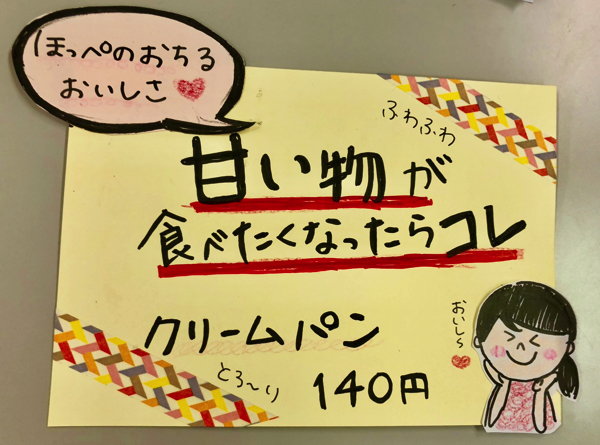 ほっぺのおちる
おいしさ
ふわふわ
甘い物が
食べたくなったらコレ
クリームパン
とろ〜り
140円
おいし〜